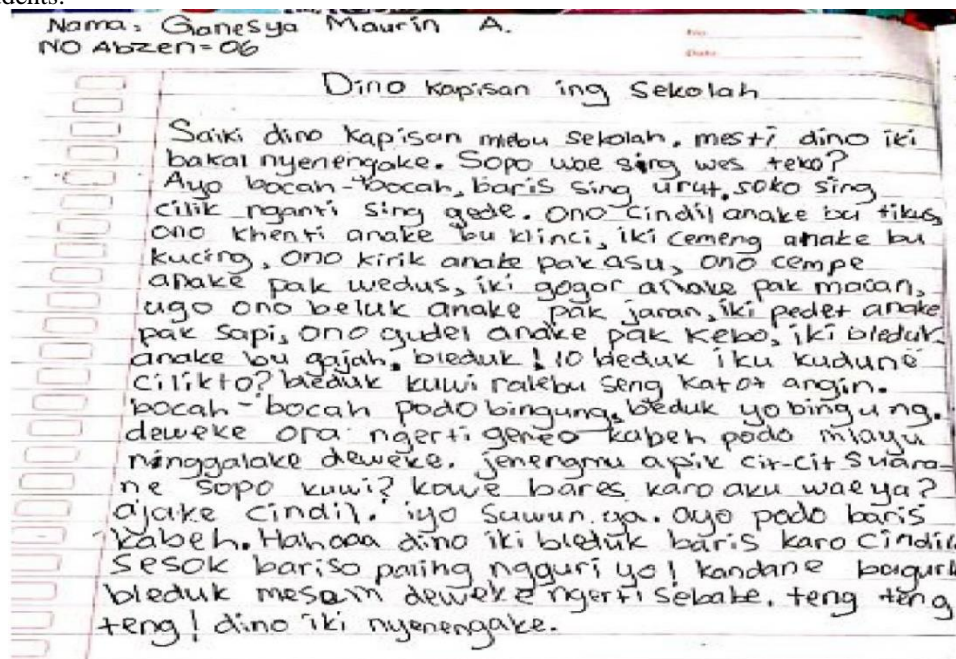 udents.
Nama: Ganesya Maurin A.
No Abzen=06
No:
Date:
Dino kapisan ing Sekolah
Saiki dino kapisan mlebu sekolah. mesti dino iki
bakal nyenengake. Sopo wae sing wes teko?
Ayo bocah-bocah, baris sing urut, soko sing
cilik nganti sing gede. ono cindil anake bu tikus,
ono khenti anake bu klinci, iki cemeng anake bu
kucing, ono kirik anake pak asu, ono cempe
anake pak wedus, iki gogor anake pak macan,
ugo ono beluk anake pak jaran, iki pedet anake
pak sapi, ono gudel anake pak kebo, iki bleduk
anake bu gajah, bleduk! lo bleduk iku kudune
cilik to? bleduk kuwi ralebu seng katot angin.
bocah-bocah podo bingung, bleduk yo bingung.
deweke ora ngerti geneo kabeh podo mlayu
ninggalake deweke. jenengmu apik cit-cit suara-
ne sopo kuwi? kowe bares karo aku wae ya?
ajake cindil. iyo suwun ya. ayo podo baris
kabeh. Hahaaa dino iki bleduk baris karo cindil
sesok bariso paring ngguri yo! kandane bagurk
bleduk mesem deweke ngerti sebabe. teng teng
teng! dino iki nyenengake.